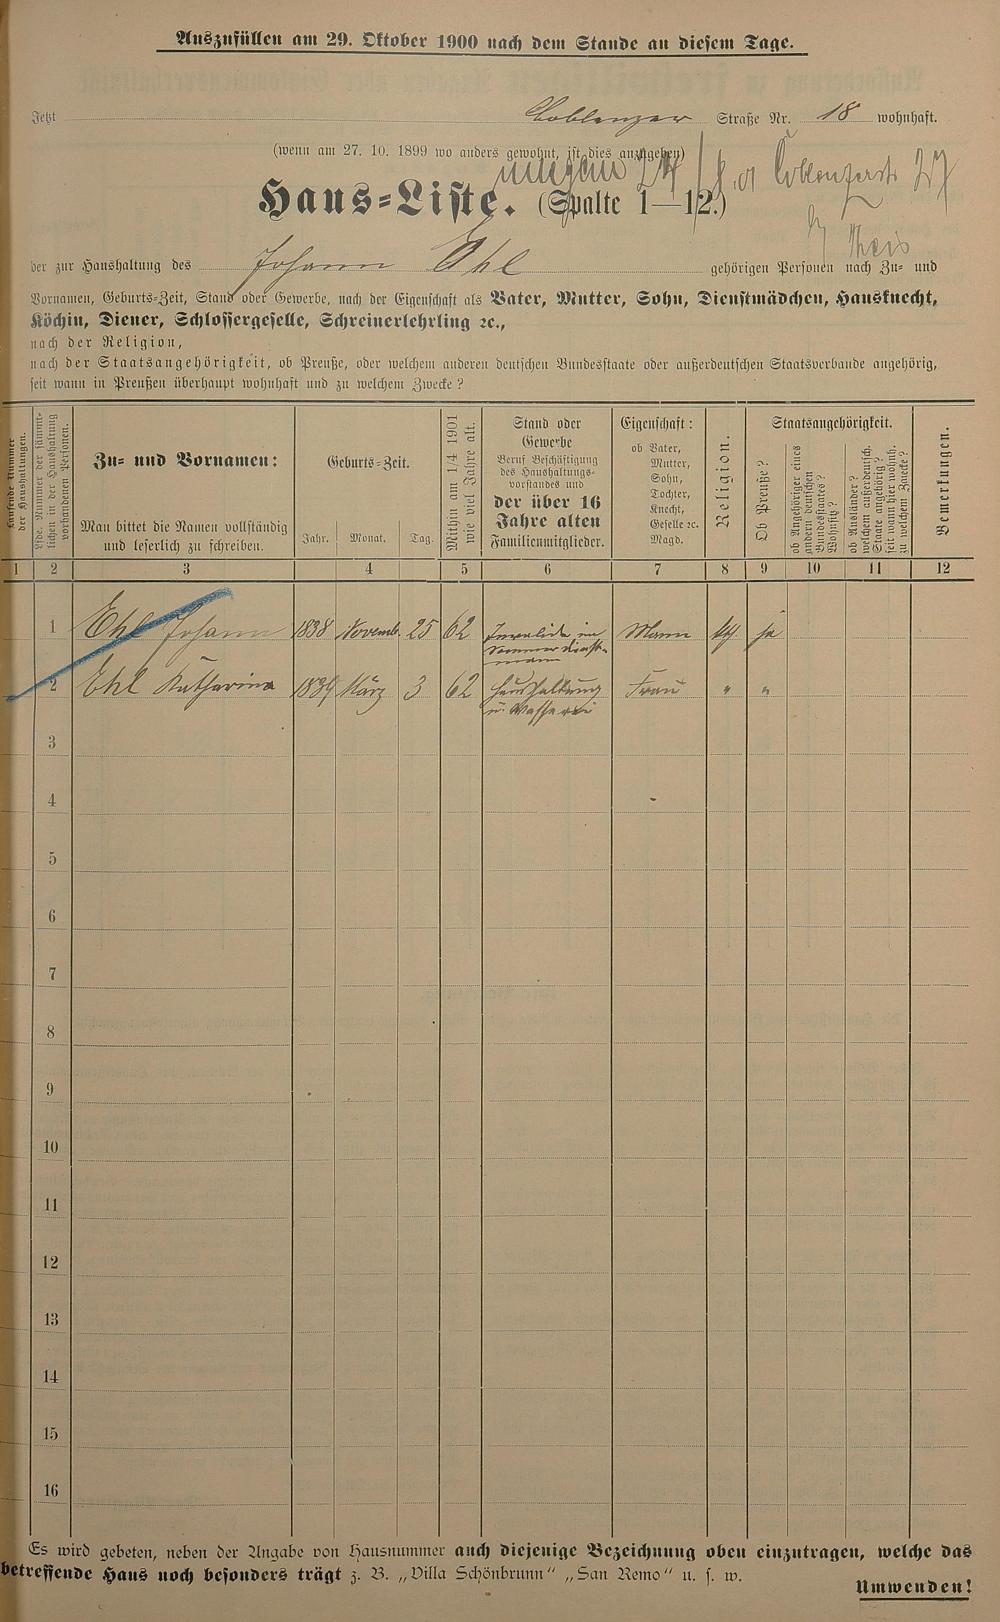 Auszufüllen am 29. Oktober 1900 nach dem Stande an diesem Tage.
Jetzt Coblenzer Straße Nr. 18 wohnhaft.
(wenn am 27. 10. 1899 wo anders gewohnt, ist dies anzugeben)
Coblenzerstr 27
Haus=Liste. (Spalte 1—12.)
Theis
der zur Haushaltung des Johann Ehl gehörigen Personen nach Zu= und
Vornamen, Geburts=Zeit, Stand oder Gewerbe, nach der Eigenschaft als Vater, Mutter, Sohn, Dienstmädchen, Hausknecht,
Köchin, Diener, Schlossergeselle, Schreinerlehrling ꝛc.,
nach der Religion,
nach der Staatsangehörigkeit, ob Preuße, oder welchem anderen deutschen Bundesstaate oder außerdeutschen Staatsverbande angehörig,
seit wann in Preußen überhaupt wohnhaft und zu welchem Zwecke?
Laufende Nummer der Haushaltungen.
Lfde. Nummer der sämmt=lichen in der Haushaltung vorhandenen Personen.
Zu= und Vornamen:
Man bittet die Namen vollständig
und leserlich zu schreiben.
Geburts=Zeit.
Jahr. Monat. Tag.
Mithin am 1/4 1901 wie viel Jahre alt.
Stand oder
Gewerbe
Beruf Beschäftigung
des Haushaltungs=
vorstandes und
der über 16
Jahre alten
Familienmitglieder.
Eigenschaft:
ob Vater,
Mutter,
Sohn,
Tochter,
Knecht,
Geselle ꝛc.
Magd.
Religion.
Staatsangehörigkeit.
Ob Preuße?
ob Angehöriger eines andern deutschen Bundesstaates? Wohnsitz?
ob Ausländer? welchem außerdeutsch. Staate angehörig? seit wann hier wohnh. zu welchem Zwecke?
Bemerkungen.
1 2 3 4 5 6 7 8 9 10 11 12
1 Ehl Johann 1838 Novemb. 25 62 Invalide im Mann kth. ja
Sommer dienst=
mann
2 Ehl Katharina 1839 März 3 62 Haushaltung Frau " "
u.
3
4
5
6
7
8
9
10
11
12
13
14
15
16
Es wird gebeten, neben der Angabe von Hausnummer auch diejenige Bezeichnung oben einzutragen, welche das
betreffende Haus noch besonders trägt z. B. „Villa Schönbrunn“ „San Remo“ u. s. w.
Umwenden!